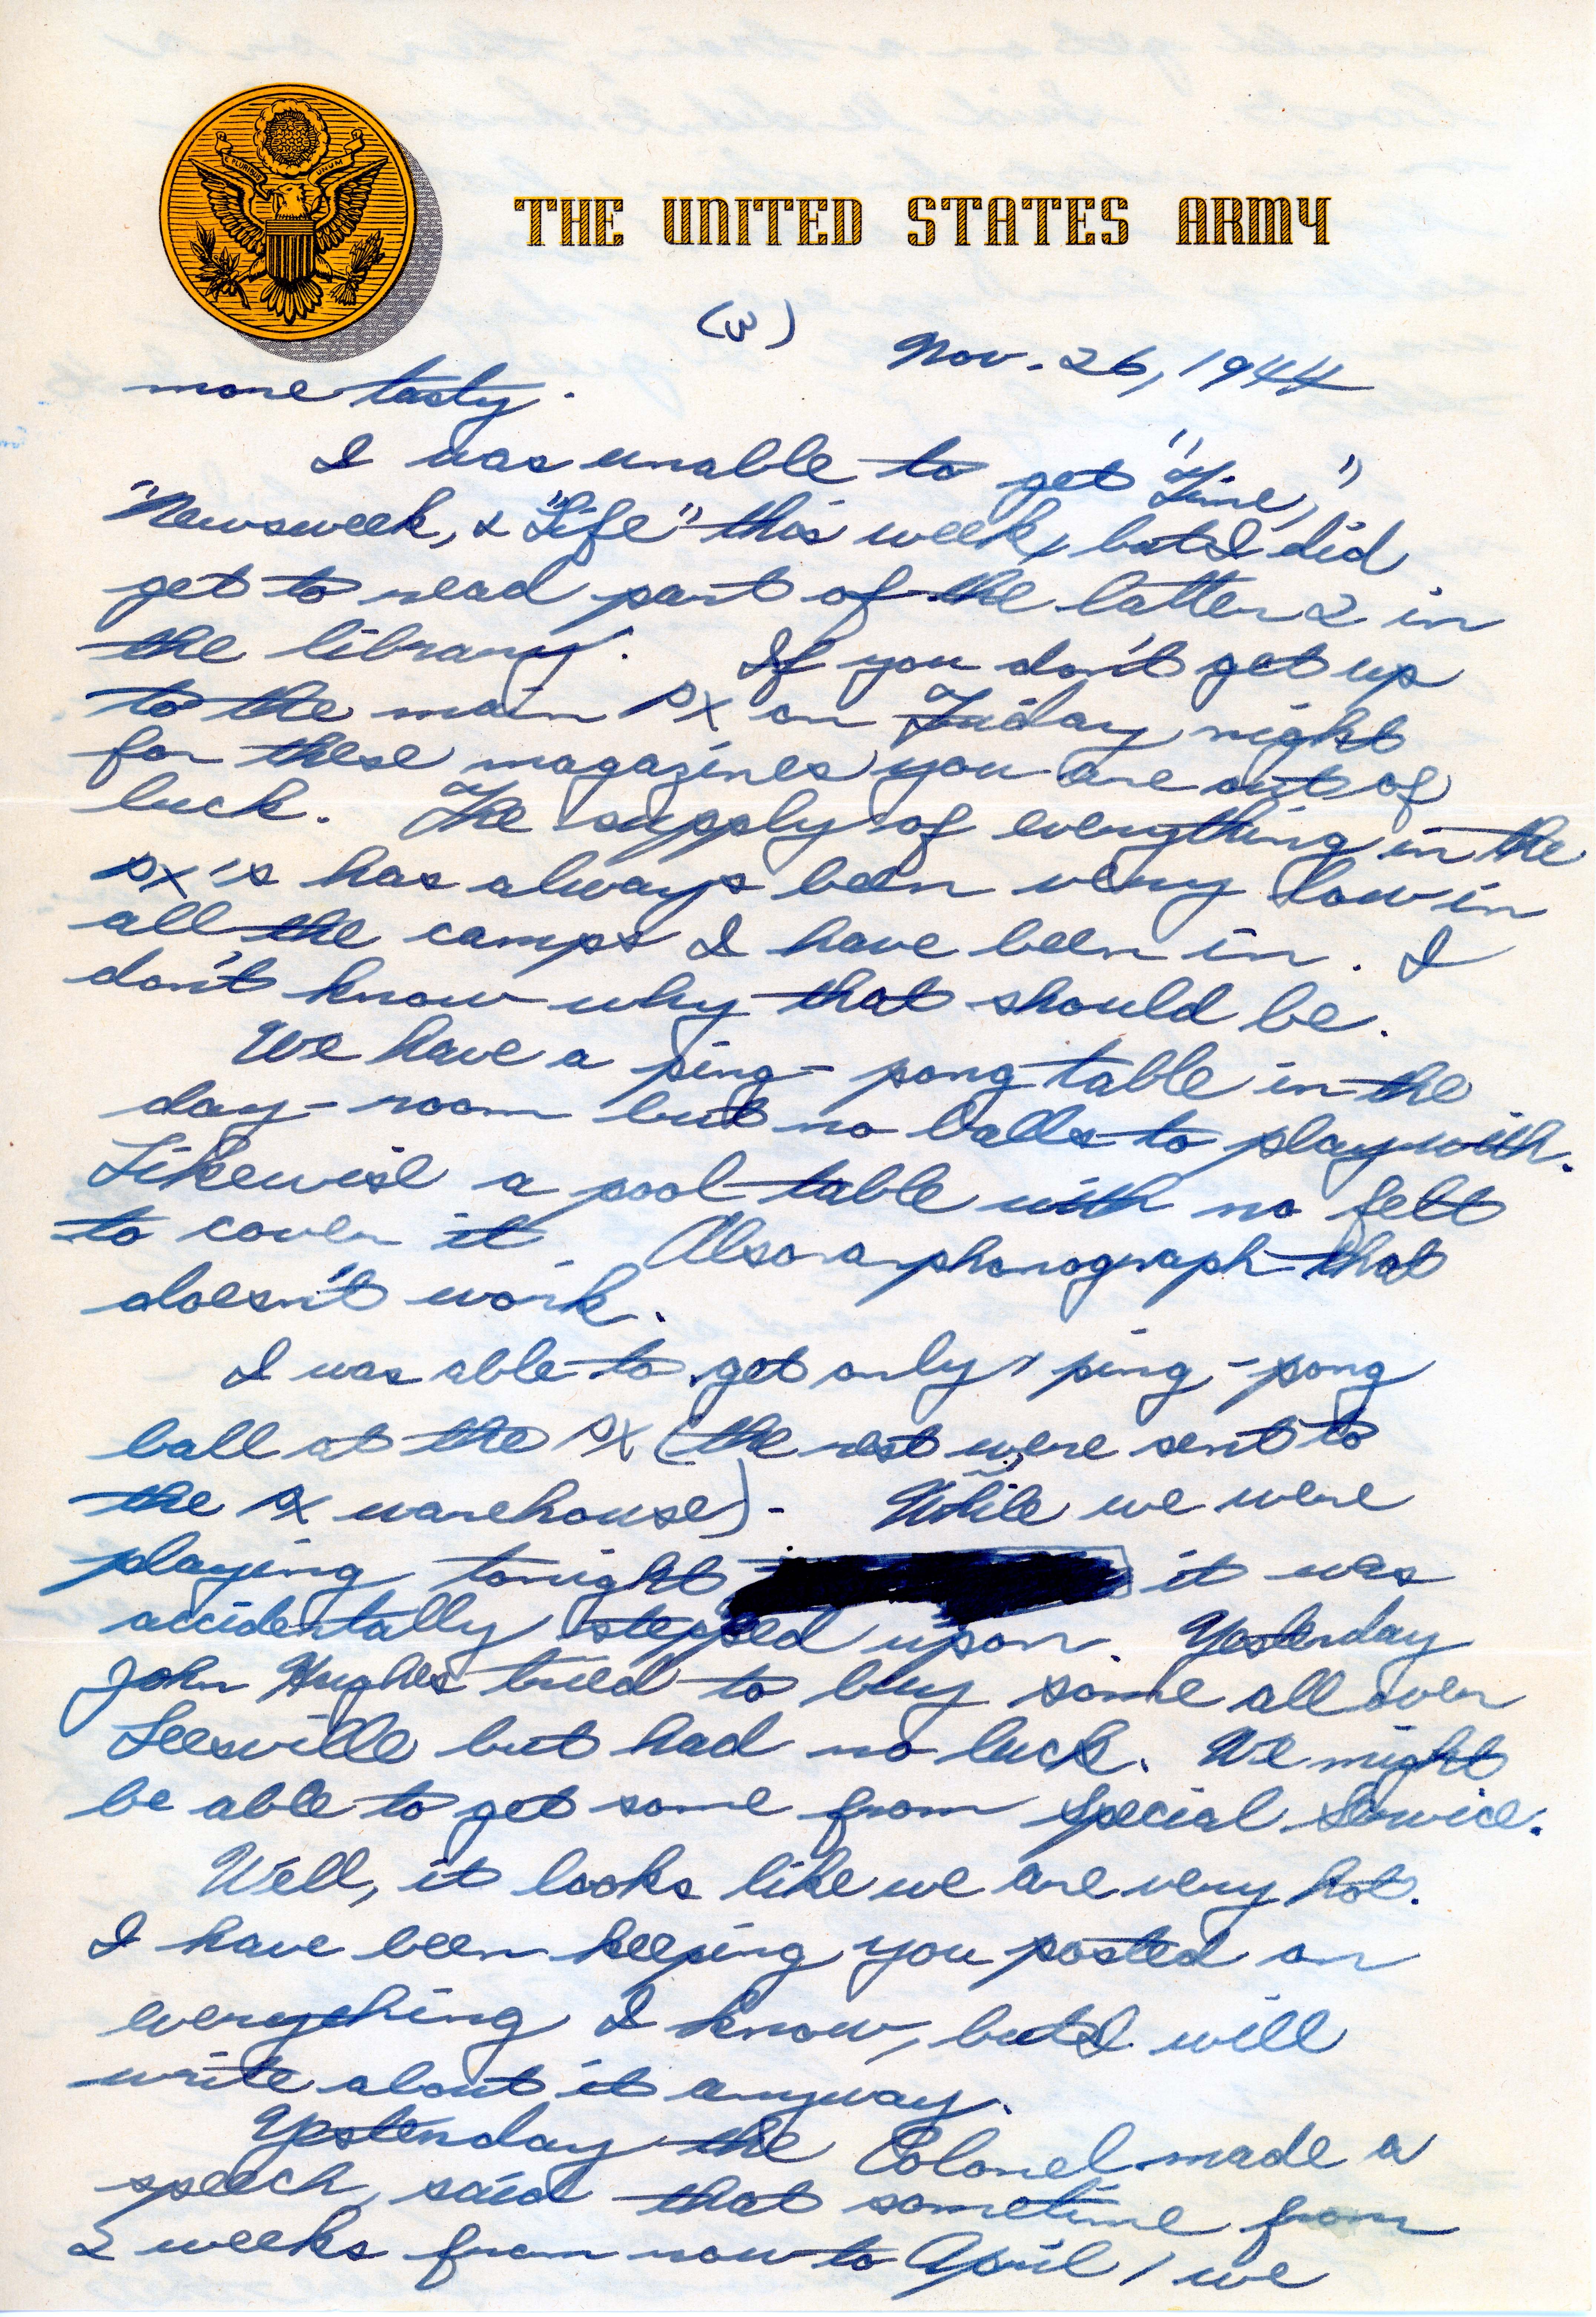 E PLURIBUS UNUM
THE UNITED STATES ARMY
(3)
Nov. 26, 1944
more tasty.
I was unable to get "Time,"
"Newsweek, & "Life" this week, but I did
get to read part of the latter 2 in
the library. If you don't get up
to the main PX on Friday night
for these magazines you are out of
luck. The supply of everything in the
PX's has always been very low in
all the camps I have been in. I
don't know why that should be.
We have a ping-pong table in the
day-room but no balls to play with.
Likewise a pool table with no felt
to cover it. Also a phonograph that
doesn't work.
I was able to get only 1 ping-pong
ball at the PX (the rest were sent to
the PX warehouse). While we were
playing tonight it was
accidentally stepped upon. Yesterday
John Hughes tried to buy some all over
Leesville but had no luck. We might
be able to get some from Special Service.
Well, it looks like we are very hot.
I have been keeping you posted on
everything I know, but I will
write about it anyway.
Yesterday the Colonel made a
speech, said that sometime from
2 weeks from now to April 1 we